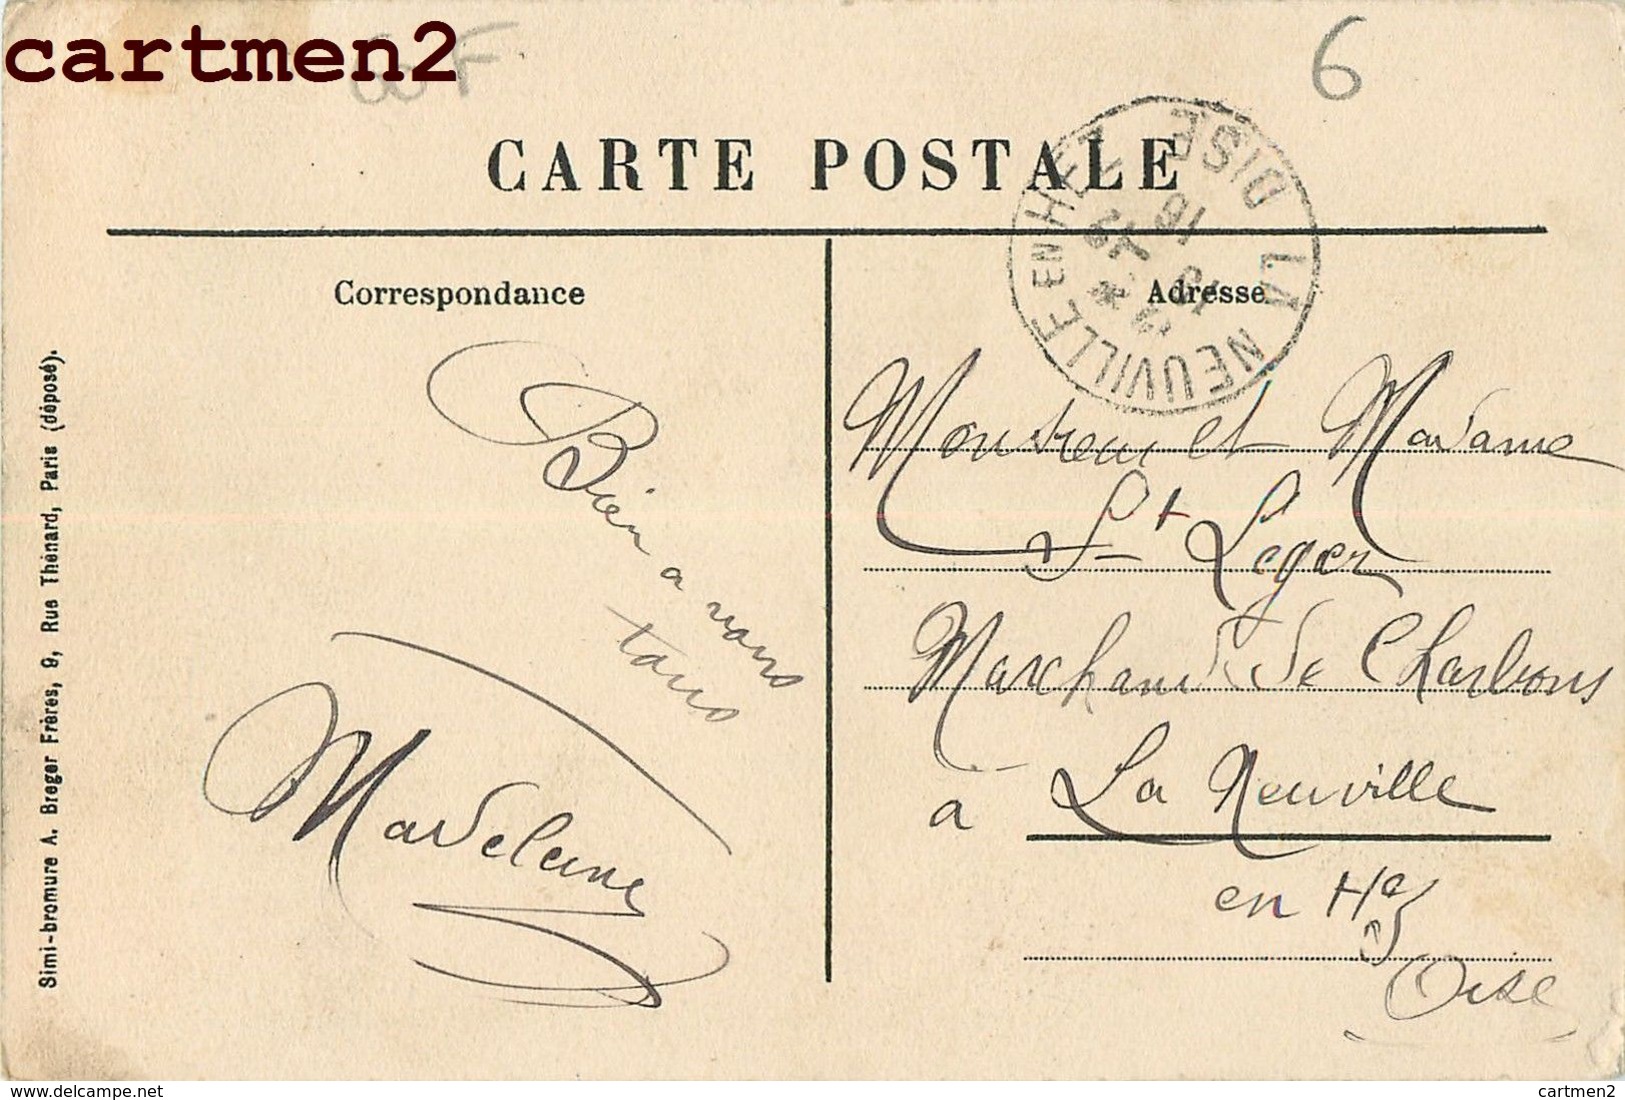 cartmen2
6
CARTE POSTALE
LA NEUVILLE EN HEZ OISE
Correspondance
Adresse
Bien a vous
tous
Madeleine
Monsieur et Madame
St Leger
Marchand de Charbons
a La Neuville
en Hez
Oise
Simi-bromure A. Breger Frères, 9, Rue Thénard, Paris (déposé).
www.delcampe.net
cartmen2